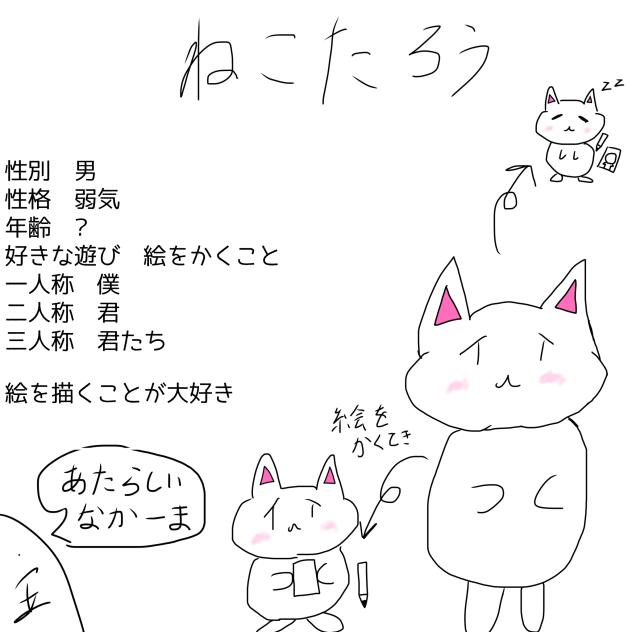 ねこたろう
zz
性別　男
性格　弱気
年齢　？
好きな遊び　絵をかくこと
一人称　僕
二人称　君
三人称　君たち
絵を描くことが大好き
絵を
かくてき
あたらしい
なかーま